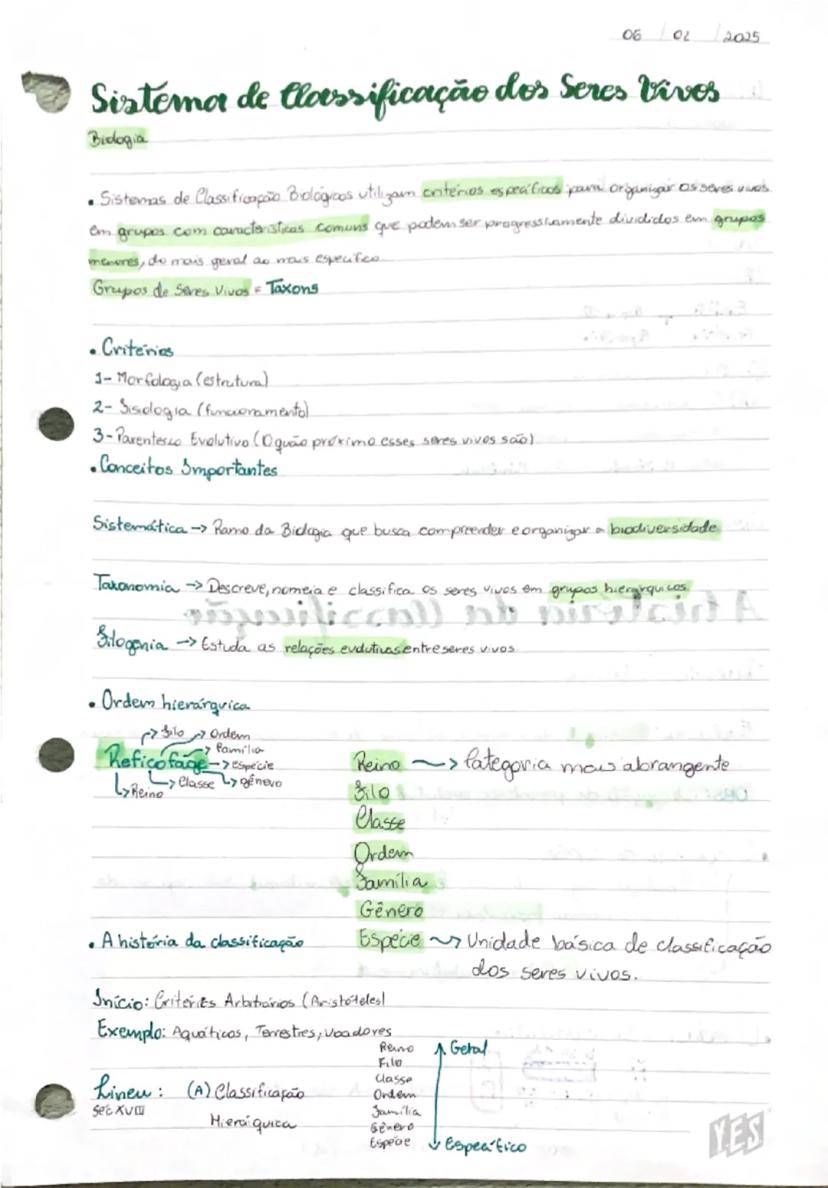 06 / 02 / 2025
Sistema de Classificação dos Seres Vivos
Biologia
• Sistemas de Classificação Biológicos utilizam critérios específicos para organizar os seres vivos
em grupos com características comuns que podem ser progressivamente divididos em grupos
menores, do mais geral ao mais específico
Grupos de Seres Vivos = Taxons
• Critérios
1- Morfologia (estrutura)
2- Fisiologia (funcionamento)
3- Parentesco Evolutivo (O quão próximo esses seres vivos são)
• Conceitos Importantes
Sistemática -> Ramo da Biologia que busca compreender e organizar a biodiversidade
Taxonomia -> Descreve, nomeia e classifica os seres vivos em grupos hierárquicos
Filogenia -> Estuda as relações evolutivas entre seres vivos
• Ordem hierárquica
-> Filo -> Ordem
-> Família
Reficofage -> espécie
-> Reino -> Classe -> gênero
Reino ~> Categoria mais abrangente
Filo
Classe
Ordem
Família
Gênero
Espécie ~> Unidade básica de classificação
dos seres vivos.
• A história da classificação
Início: Critérios Arbitrários (Aristóteles)
Exemplo: Aquáticos, Terrestres, Voadores
Lineu: (A) Classificação
Séc XVIII
Hierárquica
Reino
Filo
Classe
Ordem
Família
Gênero
Espécie
Geral
Específico
YES